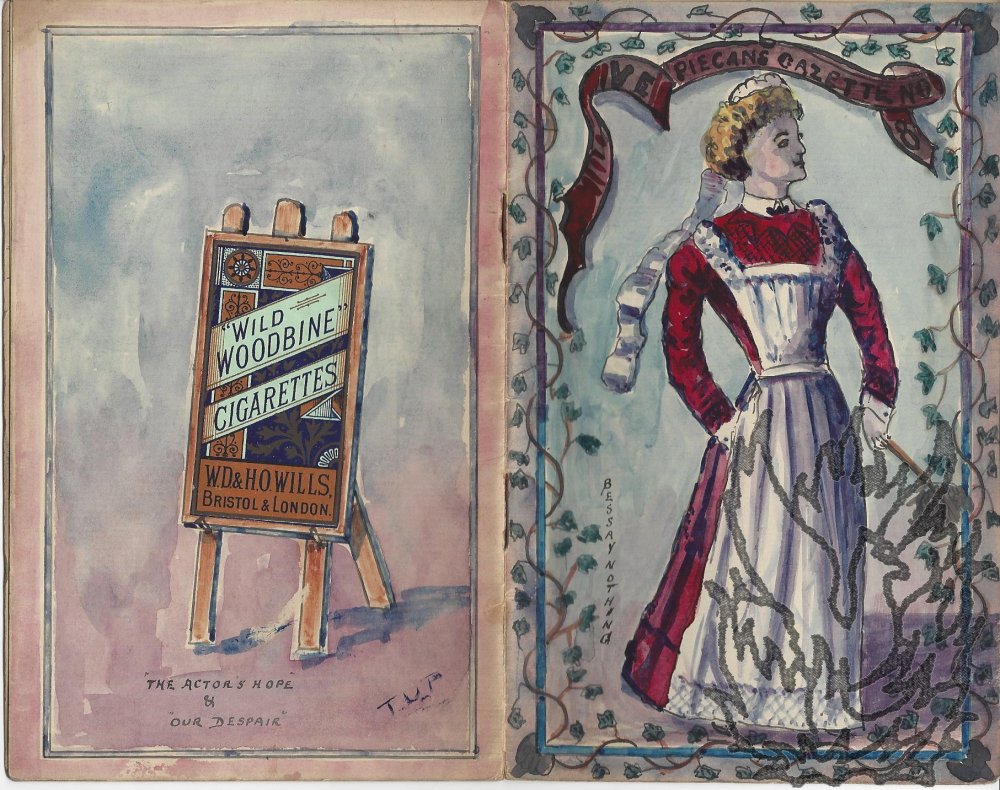 "WILD
WOODBINE"
CIGARETTES
W.D. & H.O WILLS,
BRISTOL & LONDON.
"THE ACTOR'S HOPE"
&
"OUR DESPAIR"
T.U.P
PIECANS GAZETTE NO
8
BESSAY NOTHING